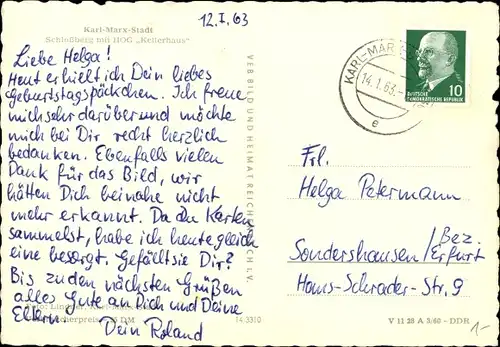 12.I.63
Karl-Marx-Stadt
Schloßberg mit HOG „Kellerhaus“
Liebe Helga!
Heut erhielt ich Dein liebes
Geburtstagspäckchen. Ich freue
mich sehr darüber und möchte
mich bei Dir recht herzlich
bedanken. Ebenfalls vielen
Dank für das Bild, wir
hätten Dich beinahe nicht
mehr erkannt. Da du Karten
sammelst, habe ich heute gleich
eine besorgt. Gefällt sie Dir?
Bis zu den nächsten Grüßen
alles Gute an Dich und Deine
Eltern
Dein Roland
14 3310
VEB BILD UND HEIMAT REICHENBACH I. V.
KARL-MAR
14.1.63
e
10
DEUTSCHE
DEMOKRATISCHE REPUBLIK
Frl.
Helga Petermann
Sondershausen/Bez.
Erfurt
Hans-Schrader-Str. 9
V 11 28 A 3/60 - DDR
1-